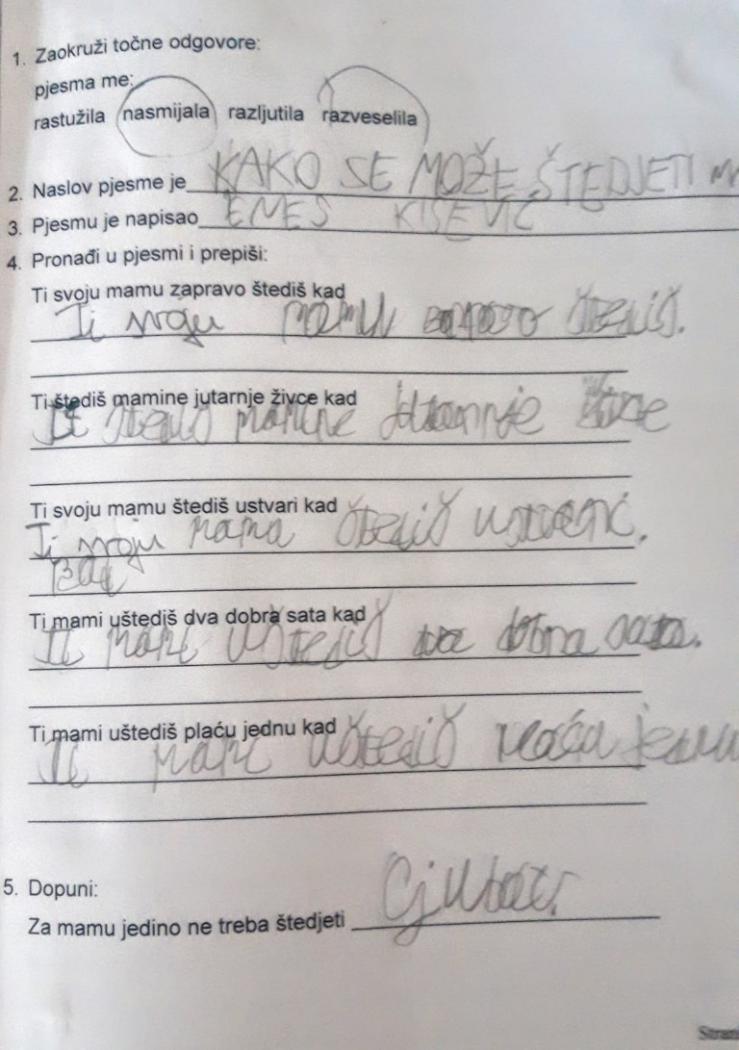 1. Zaokruži točne odgovore:
pjesma me:
rastužila nasmijala razljutila razveselila
2. Naslov pjesme je KAKO SE MOŽE ŠTEDJETI
3. Pjesmu je napisao ENES KIŠEVIĆ
4. Pronađi u pjesmi i prepiši:
Ti svoju mamu zapravo štediš kad
Ti svoju mamu zapravo štediš.
Ti štediš mamine jutarnje živce kad
Ti štediš mamine živce
Ti svoju mamu štediš ustvari kad
Ti svoju mama štediš
Ti mami uštediš dva dobra sata kad
Ti mami uštediš dva dobra sata.
Ti mami uštediš plaću jednu kad
Ti mami uštediš
5. Dopuni:
Za mamu jedino ne treba štedjeti